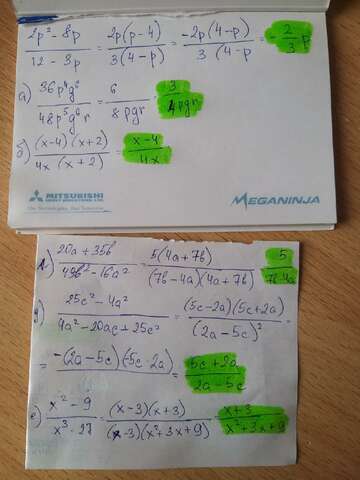 2p² - 8p / 12 - 3p = 2p(p-4) / 3(4-p) = -2p(4-p) / 3(4-p = -2/3 p
а) 36p⁴q⁶ / 48p⁵q⁶ = 6 / 8pgr = 3 / 4pgr
б) (x-4)(x+2) / 4x(x+2) = x-4 / 4x
MITSUBISHI
MEGANINJA
20a + 35b / 49b² - 16a² = 5(4a + 7b) / (7b - 4a)(4a + 7b) = 5 / 7b-4a
25c² - 4a² / 4a² - 20ac + 25c² = (5c-2a)(5c+2a) / (2a - 5c)² =
= -(2a-5c)(-5c-2a) = 5c + 2a / 2a - 5c
е) x² - 9 / x³ - 27 = (x-3)(x+3) / (x-3)(x²+3x+9) = x+3 / x²+3x+9